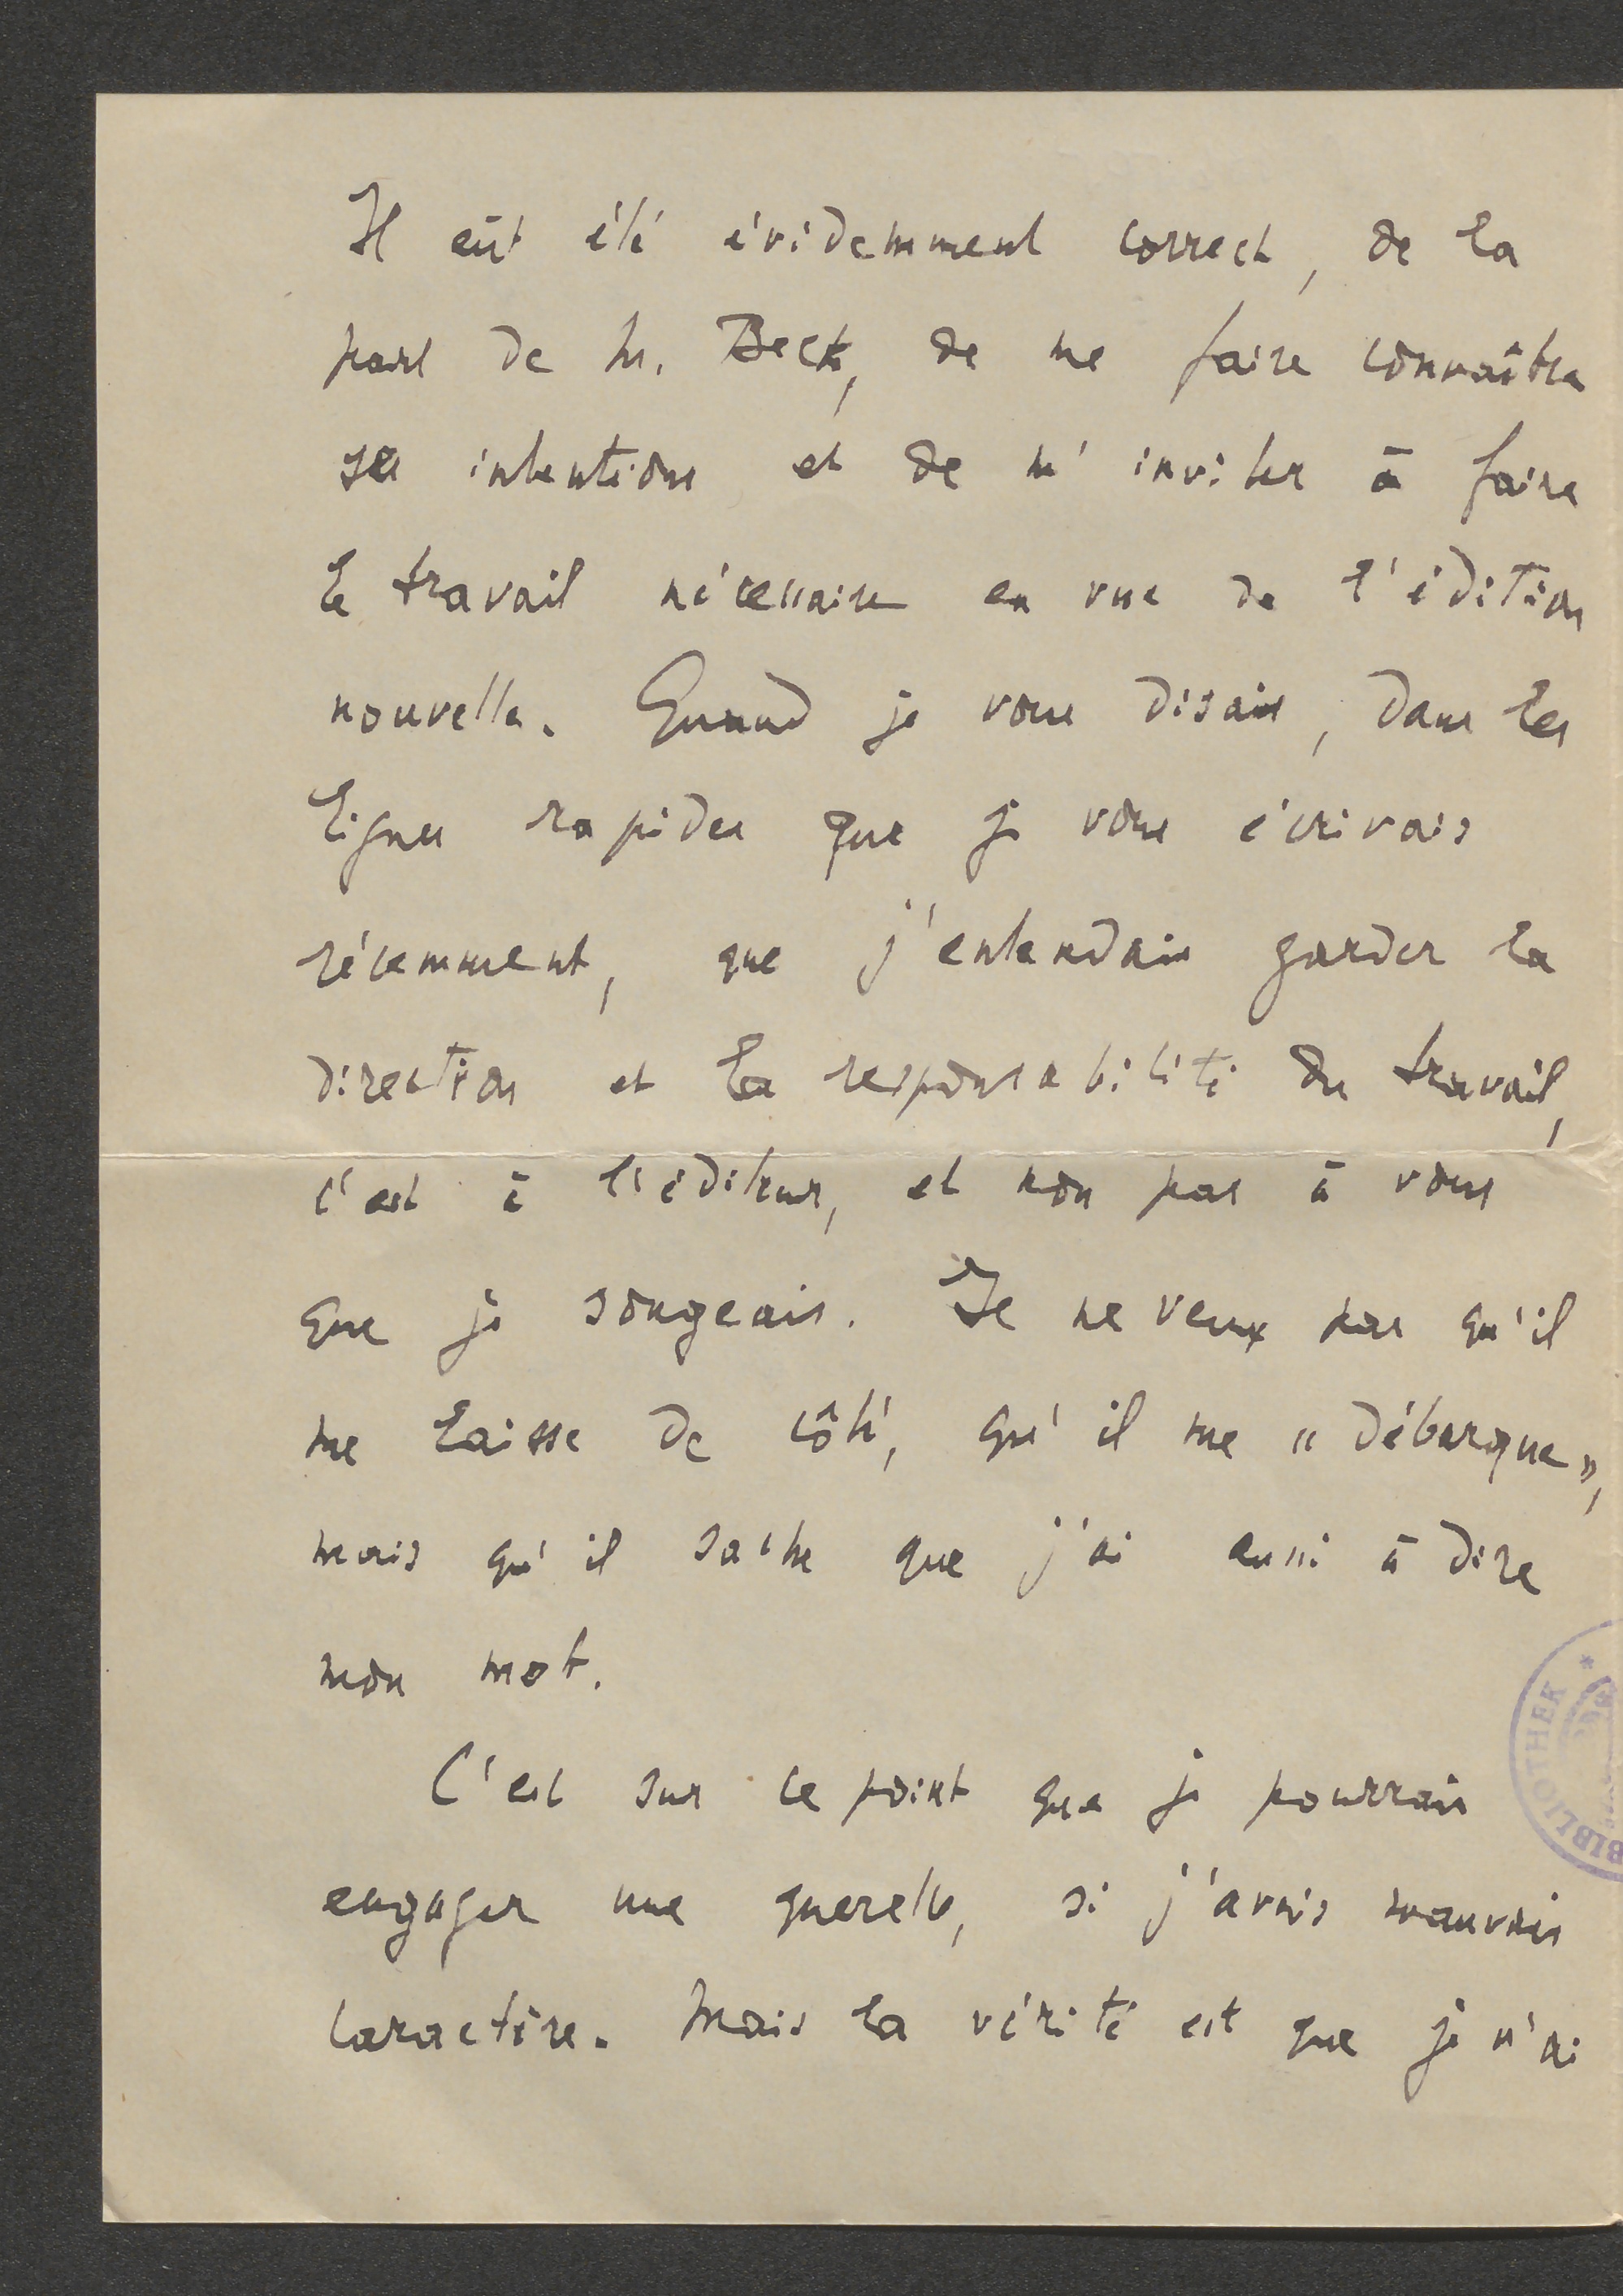 Il eût été évidemment correct, de la
part de M. Beck, de me faire connaître
ses intentions et de m'inviter à faire
le travail nécessaire en vue de l'édition
nouvelle. Quand je vous disais, dans les
lignes rapides que je vous écrivais
récemment, que j'entendais garder la
direction et la responsabilité du travail,
c'est à l'éditeur, et non pas à vous
que je songeais. Je ne veux pas qu'il
me laisse de côté, qu'il me « débarque »,
mais qu'il sache que j'ai aussi à dire
mon mot.
C'est sur ce point que je pourrais
engager une querelle, si j'avais mauvais
caractère. Mais la vérité est que je n'ai
BIBLIOTHEK *